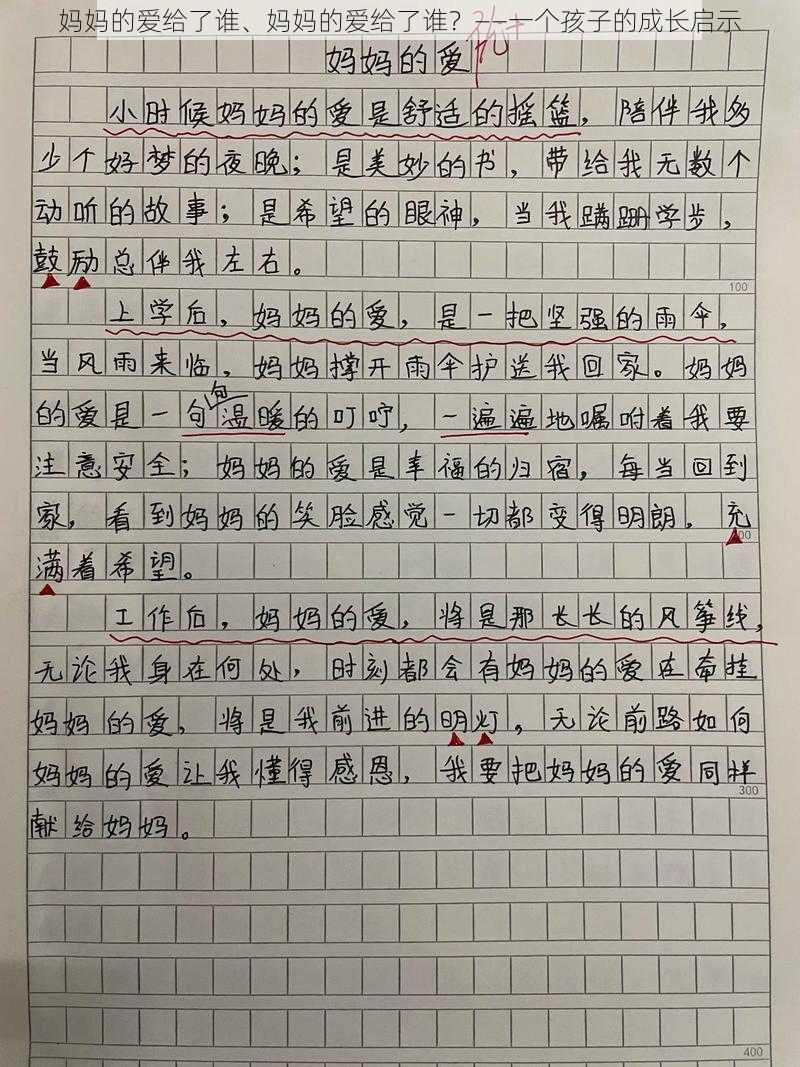 妈妈的爱给了谁、妈妈的爱给了谁？——一个孩子的成长启示
妈妈的爱
优+
小时候妈妈的愛是舒适的摇篮，陪伴我多
少个好梦的夜晚；是美妙的书，带给我无数个
动听的故事；是希望的眼神，当我蹒跚学步，
鼓励总伴我左右。
100
上学后，妈妈的爱，是一把坚强的雨伞，
当风雨来临，妈妈撑开雨伞护送我回家。妈妈
句
的爱是一句温暖的叮咛，一遍遍地嘱咐着我要
注意安全；妈妈的爱是幸福的归宿，每当回到
家，看到妈妈的笑脸感觉一切都变得明朗，充
满着希望。
工作后，妈妈的爱，将是那长长的风筝线，
无论我身在何处，时刻都会有妈妈的爱在牵挂
妈妈的爱，将是我前进的明灯，无论前路如何
妈妈的爱让我懂得感恩，我要把妈妈的爱同样
300
献给妈妈。
400